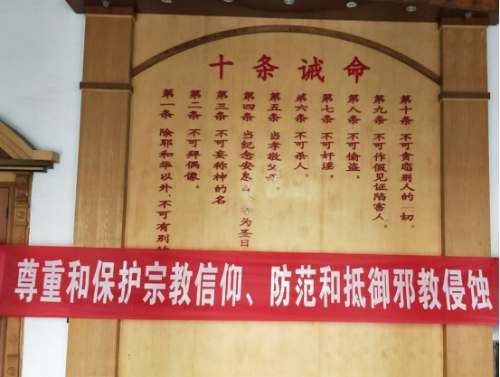 十条诫命
第一条 除耶和华以外,不可有别
第二条 不可拜偶像。
第三条 不可妄称神的名
第四条 当纪念安息日 为圣日
第五条 当孝敬父母。
第六条 不可杀人
第七条 不可奸淫。
第八条 不可偷盗。
第九条 不可作假见证陷害人。
第十条 不可贪恋别人的一切。
尊重和保护宗教信仰、防范和抵御邪教侵蚀